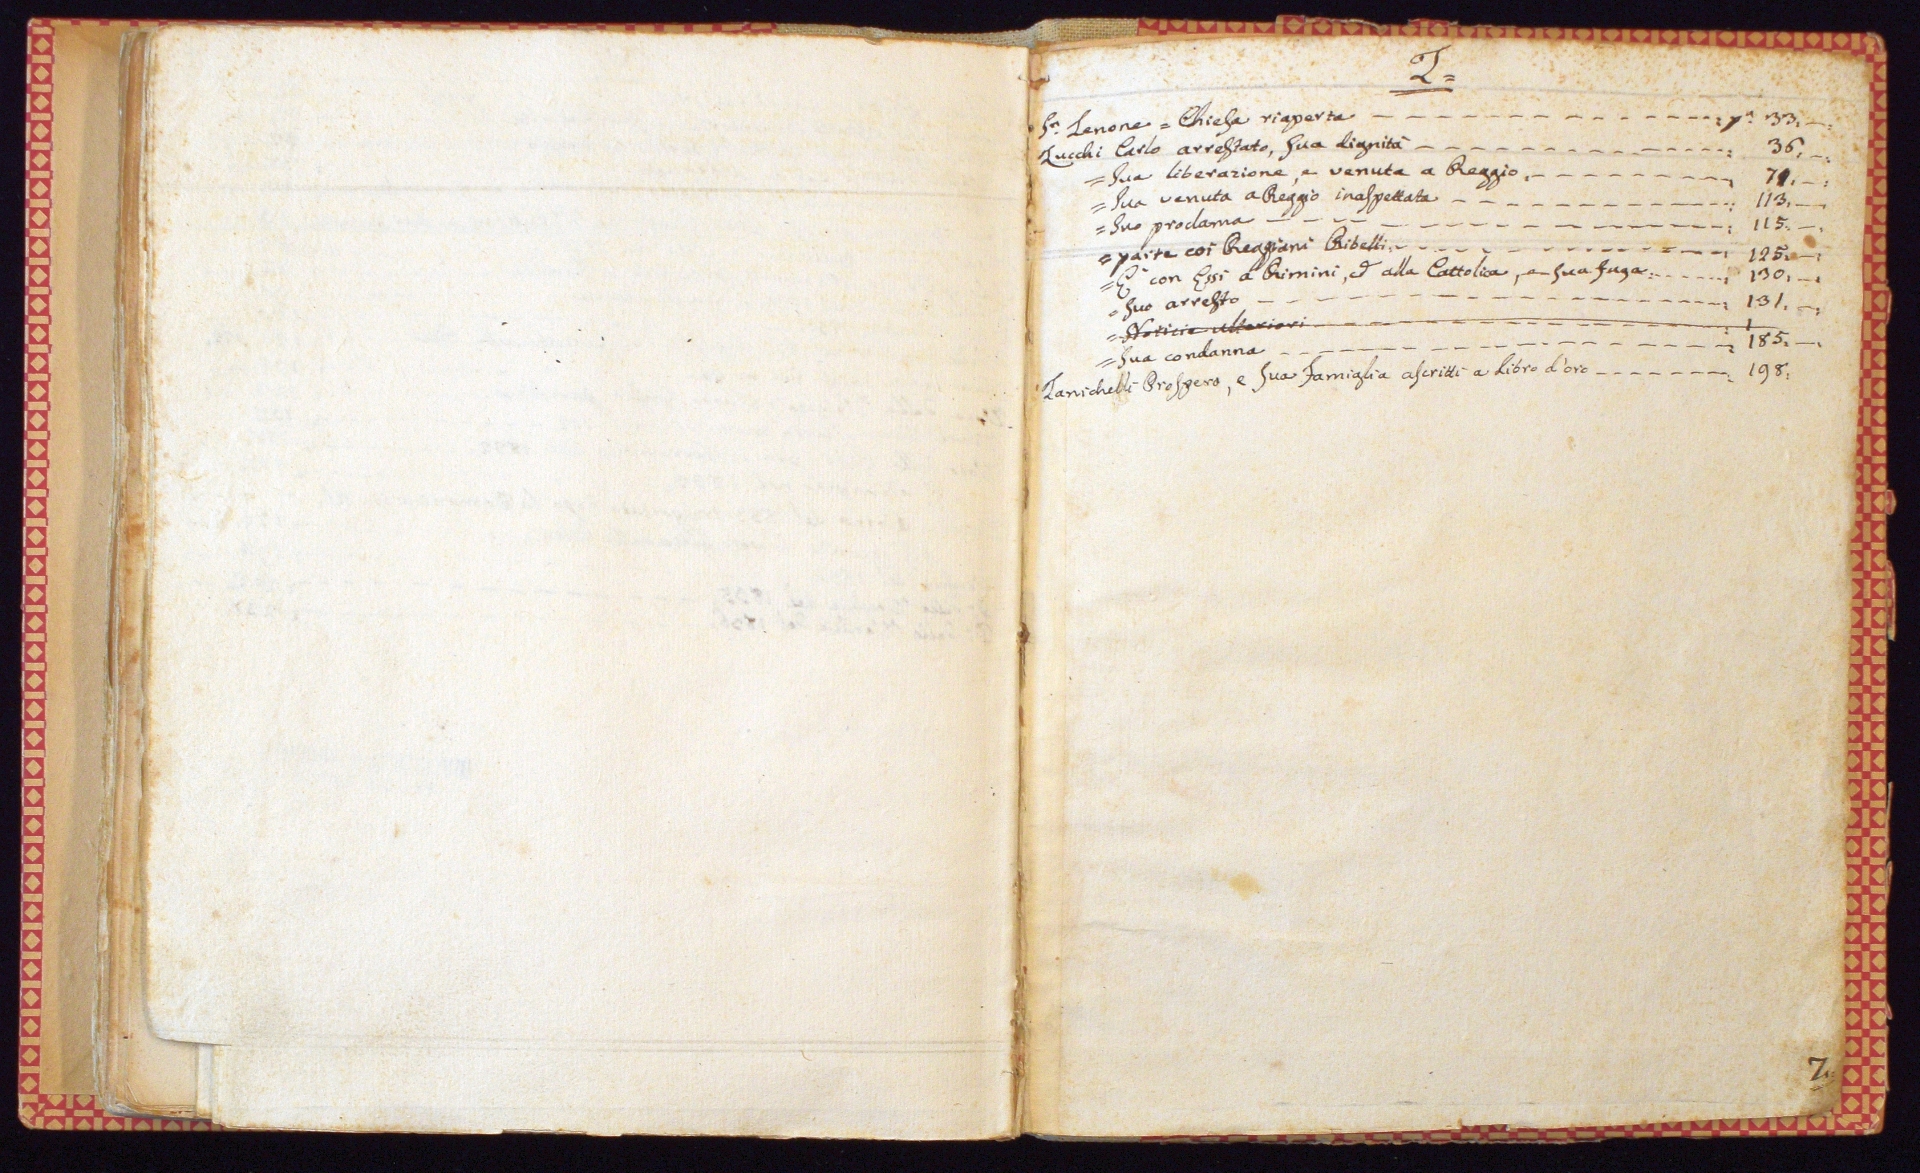 Z=
Sn. Zenone = Chiesa riaperta - - - - - - - - - - : pa. 33. -.
Zucchi Carlo arrestato, sua dignità - - - - - - - - - - : 36. -.
= Sua liberazione, e venuta a Reggio. - - - - - - - - : 71. -.
= Sua venuta a Reggio inaspettata - - - - - - - - - - : 113. -.
= Suo proclama - - - - - - - - - - - - : 115. -.
= parte coi Reggiani Ribelli. - - - - - - - - - - : 125. -.
= È con Essi a Rimini, ed alla Cattolica, e sua fuga. - - - - : 130. -.
= Suo arresto - - - - - - - - - - - - : 131. -.
= Notizie ulteriori
= Sua condanna - - - - - - - - - - - - : 185. -.
Zanichelli Prospero, e sua famiglia ascritti a Libro d'oro - - - - - - : 198.
Z.